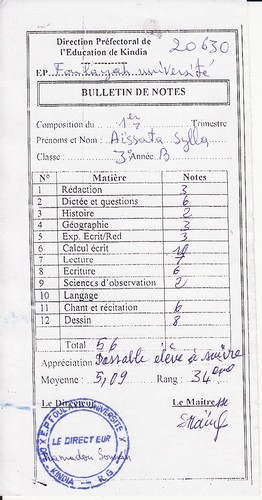 Direction Préfectoral de
l'Education de Kindia
20630
EP Foulayah université
BULLETIN DE NOTES
Composition du 1er Trimestre
Prénoms et Nom : Aissata Sylla
Classe : 3e Année B
N° Matière Notes
1 Rédaction 3
2 Dictée et questions 6
3 Histoire 2
4 Géographie 3
5 Exp. Ecrit/Red 3
6 Calcul écrit 10
7 Lecture 7
8 Ecriture 6
9 Sciences d'observation 2
10 Langage
11 Chant et récitation 6
12 Dessin 8
Total 56
Appréciation Passable élève à suivre
Moyenne : 5,09 Rang : 34
Le Directeur Le Maitre
LE DIRECTEUR
KINDIA R.G